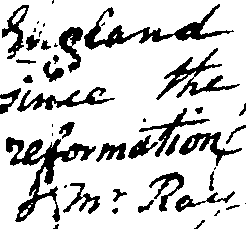 England
since the
reformation
& Mr. Ray